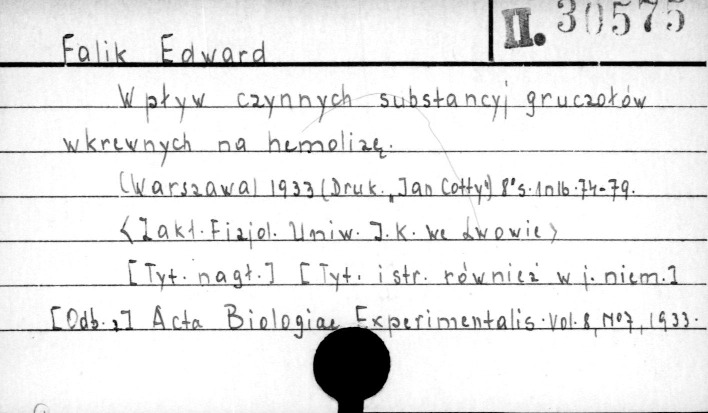 II. 30575
Falik Edward
Wpływ czynnych substancyj gruczołów
wkrewnych na hemolizę.
(Warszawa) 1933 (Druk. „Jan Cotty") 8° s. 1nlb. 74-79.
<Zakł. Fizjol. Uniw. J. K. we Lwowie>
[Tyt. nagł.] [Tyt. i str. również w j. niem.]
[Odb. z] Acta Biologiae Experimentalis. Vol. 8, No 7, 1933.